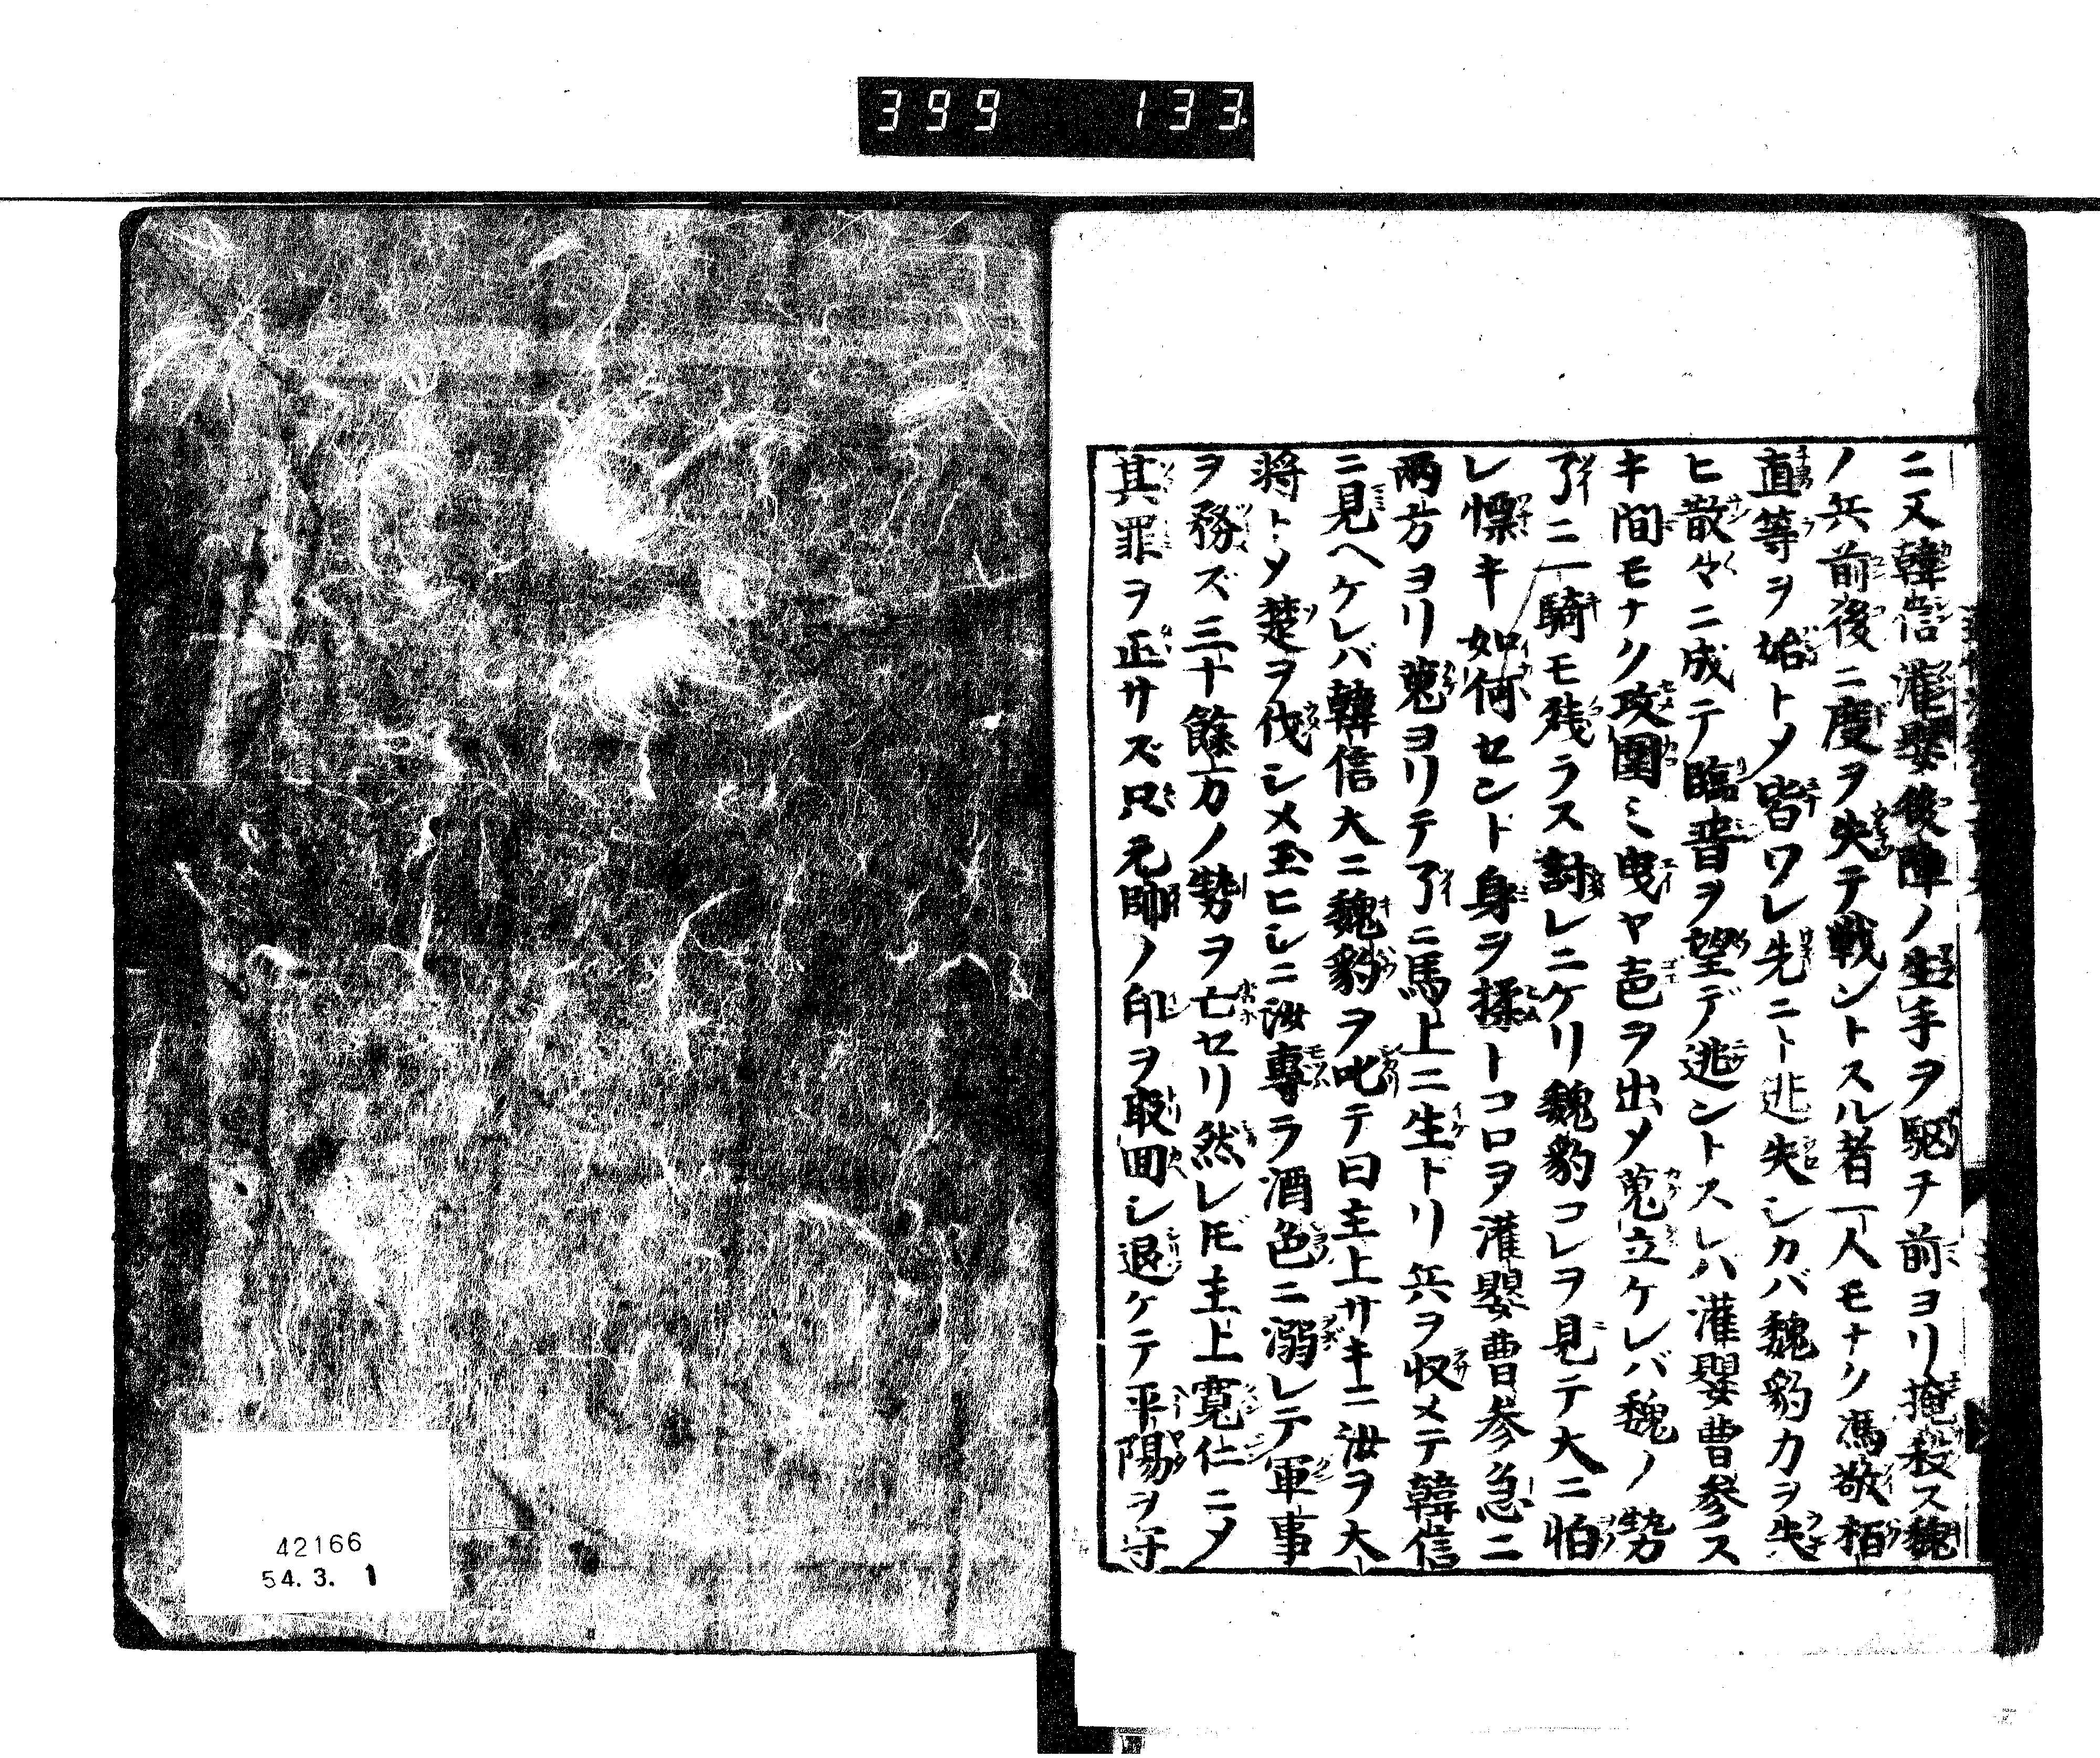 399 133
ニ又韓信灌嬰後陣ノ生手ヲ駆チ前ヨリ掩殺ス魏
ノ兵前後ニ度ヲ失テ戦ントスル者一人モナク馮敬栢
直等ヲ始トメ皆ワレ先ニト迯失シカバ魏豹力ヲ失
ヒ散々ニ成テ臨晋ヲ望デ逃ントスレハ灌嬰曹参ス
キ間モナク攻圍ミ曳ヤ声ヲ出メ蒐立ケレバ魏ノ勢
了ニ一騎モ残ラス討レニケリ魏豹コレヲ見テ大ニ怕
レ慓キ如何セント身ヲ揉トコロヲ灌嬰曹参急ニ
両方ヨリ蒐ヨリテ了ニ馬上ニ生ドリ兵ヲ収メテ韓信
ニ見ヘケレバ韓信大ニ魏豹ヲ叱テ曰主上サキニ汝ヲ大
将トメ楚ヲ伐シメ玉ヒシニ汝専ラ酒色ニ溺レテ軍事
ヲ務ズ三十餘万ノ勢ヲ亡セリ然レ𪜈主上寛仁ニメ
其罪ヲ正サズ只元帥ノ印ヲ取回シ退ケテ平陽ヲ守
42166
54.3.1